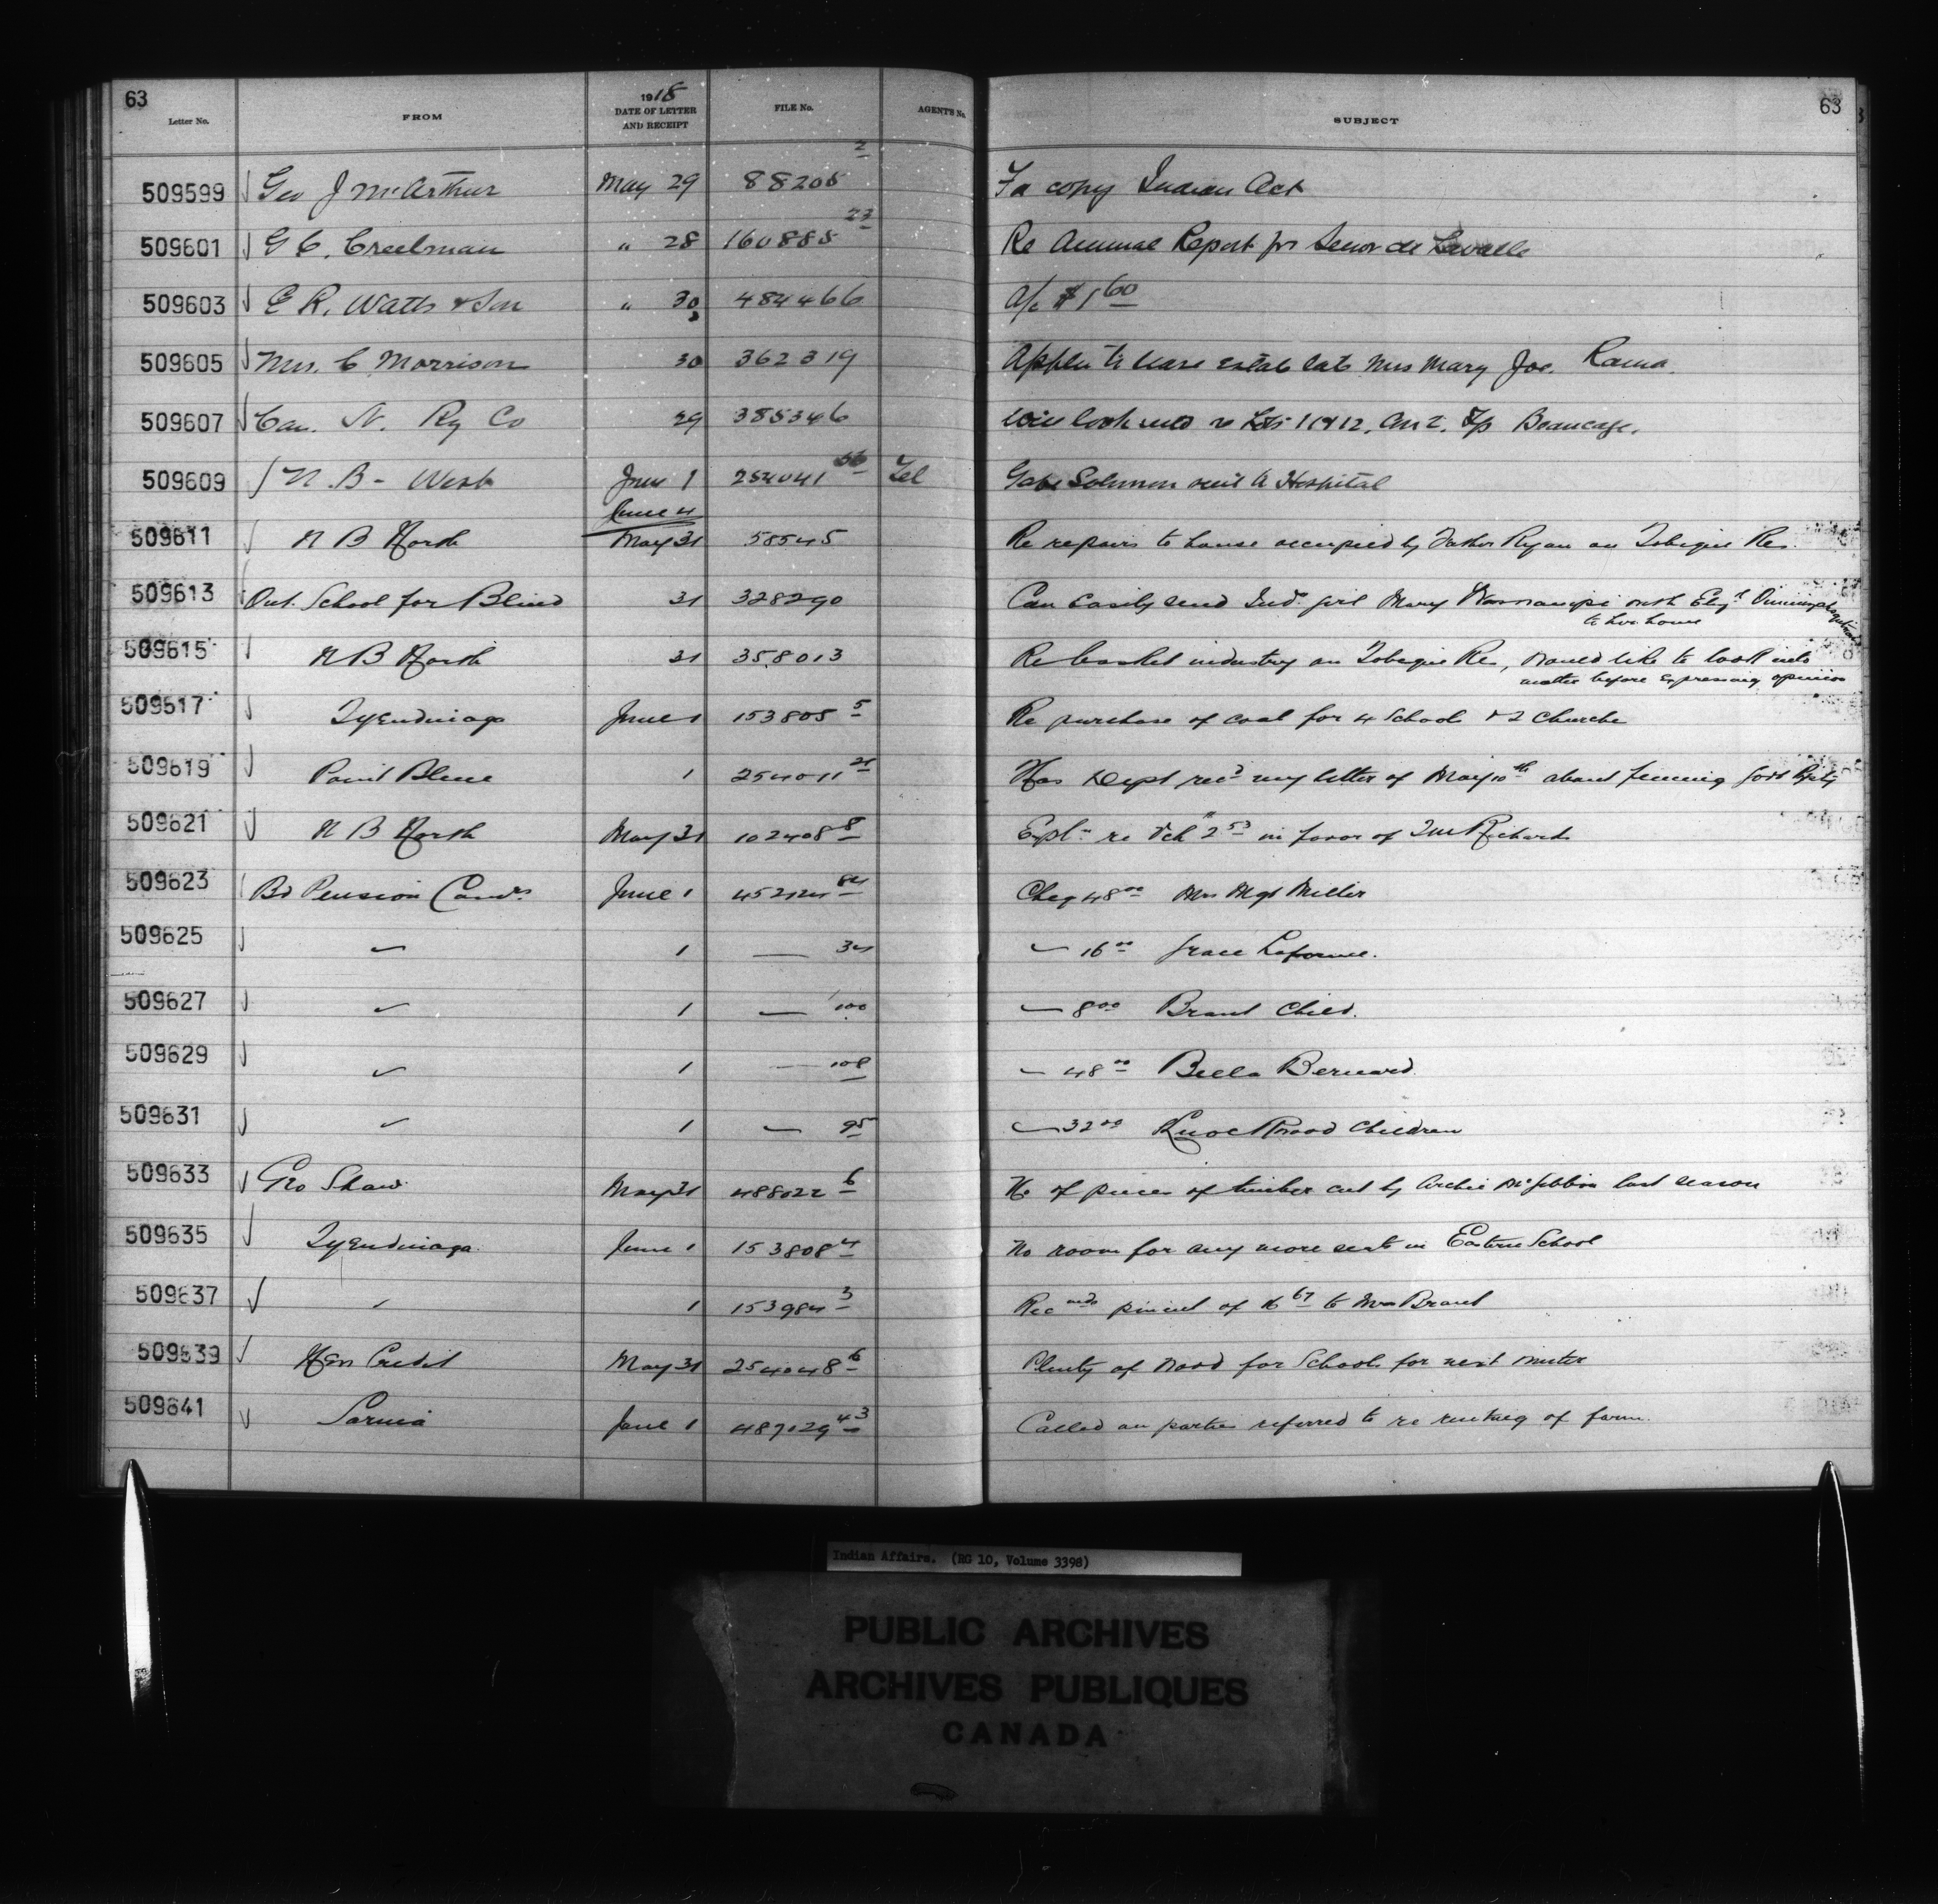 63
63
Letter No. FROM 1918 DATE OF LETTER AND RECEIPT FILE No. AGENT'S No. SUBJECT
509599 Geo J McArthur May 29 88205 2 Fa copy Indian Act
509601 G C. Creelman " 28 160888 23 Re Annual Report for Senor de Lavalle
509603 E R. Watts & Son " 30 484466 a/c $1 60
509605 Mrs. C Morrison 30 362319 Applin to lease estate late Mrs Mary Joe. Rama.
509607 Can. N. Ry Co 29 385346 Will look into re Lots 11 & 12, Con 2. Tp Beaucage.
509609 N. B - West June 1 254041 Tel Gabe Solomon sent to Hospital
June 4
509611 N B North May 31 58545 Re repairs to house occupied by Father Ryan on Tobique Res.
509613 Ont. School for Blind 31 328290 Can easily send Indn girl Mary with Elizth
to her home
509615 N B North 31 358013 Re basket industry on Tobique Res, would like to look into
matter before expressing opinion
509617 Tyendinaga June 1 153808 5 Re purchase of coal for 4 Schools & 2 Churches
509619 Point Bleue 1 254011 21 Has Dept recd my letter of May 10th about fencing Govt Ppty
509621 N B North May 31 102408 8 Expln re Vch 2 53 in favor of Richards
509623 Bd Pension Comrs June 1 452124 84 Cheq 48 00 Mrs Mgt Miller
509625 " 1 — 34 " 16 00 Grace Laforme.
509627 " 1 — 100 " 8 00 Brant Child.
509629 " 1 — 108 " 48 00 Bella Bernard.
509631 " 1 — 95 " 32 00 Knockwood Children
509633 Geo Shaw May 31 488022 6 No of pieces of timber cut by Archie McGibbon last season
509635 Tyendinaga June 1 153808 4 No room for any more seats in Eastern School
509637 " 1 153984 3 Recmds pment of 16 67 to Mrs Brant
509639 New Credit May 31 254048 6 Plenty of wood for Schools for next winter
509641 Sarnia June 1 487029 43 Called on parties referred to re renting of farm.
Indian Affairs. (RG 10, Volume 3398)
PUBLIC ARCHIVES
ARCHIVES PUBLIQUES
CANADA